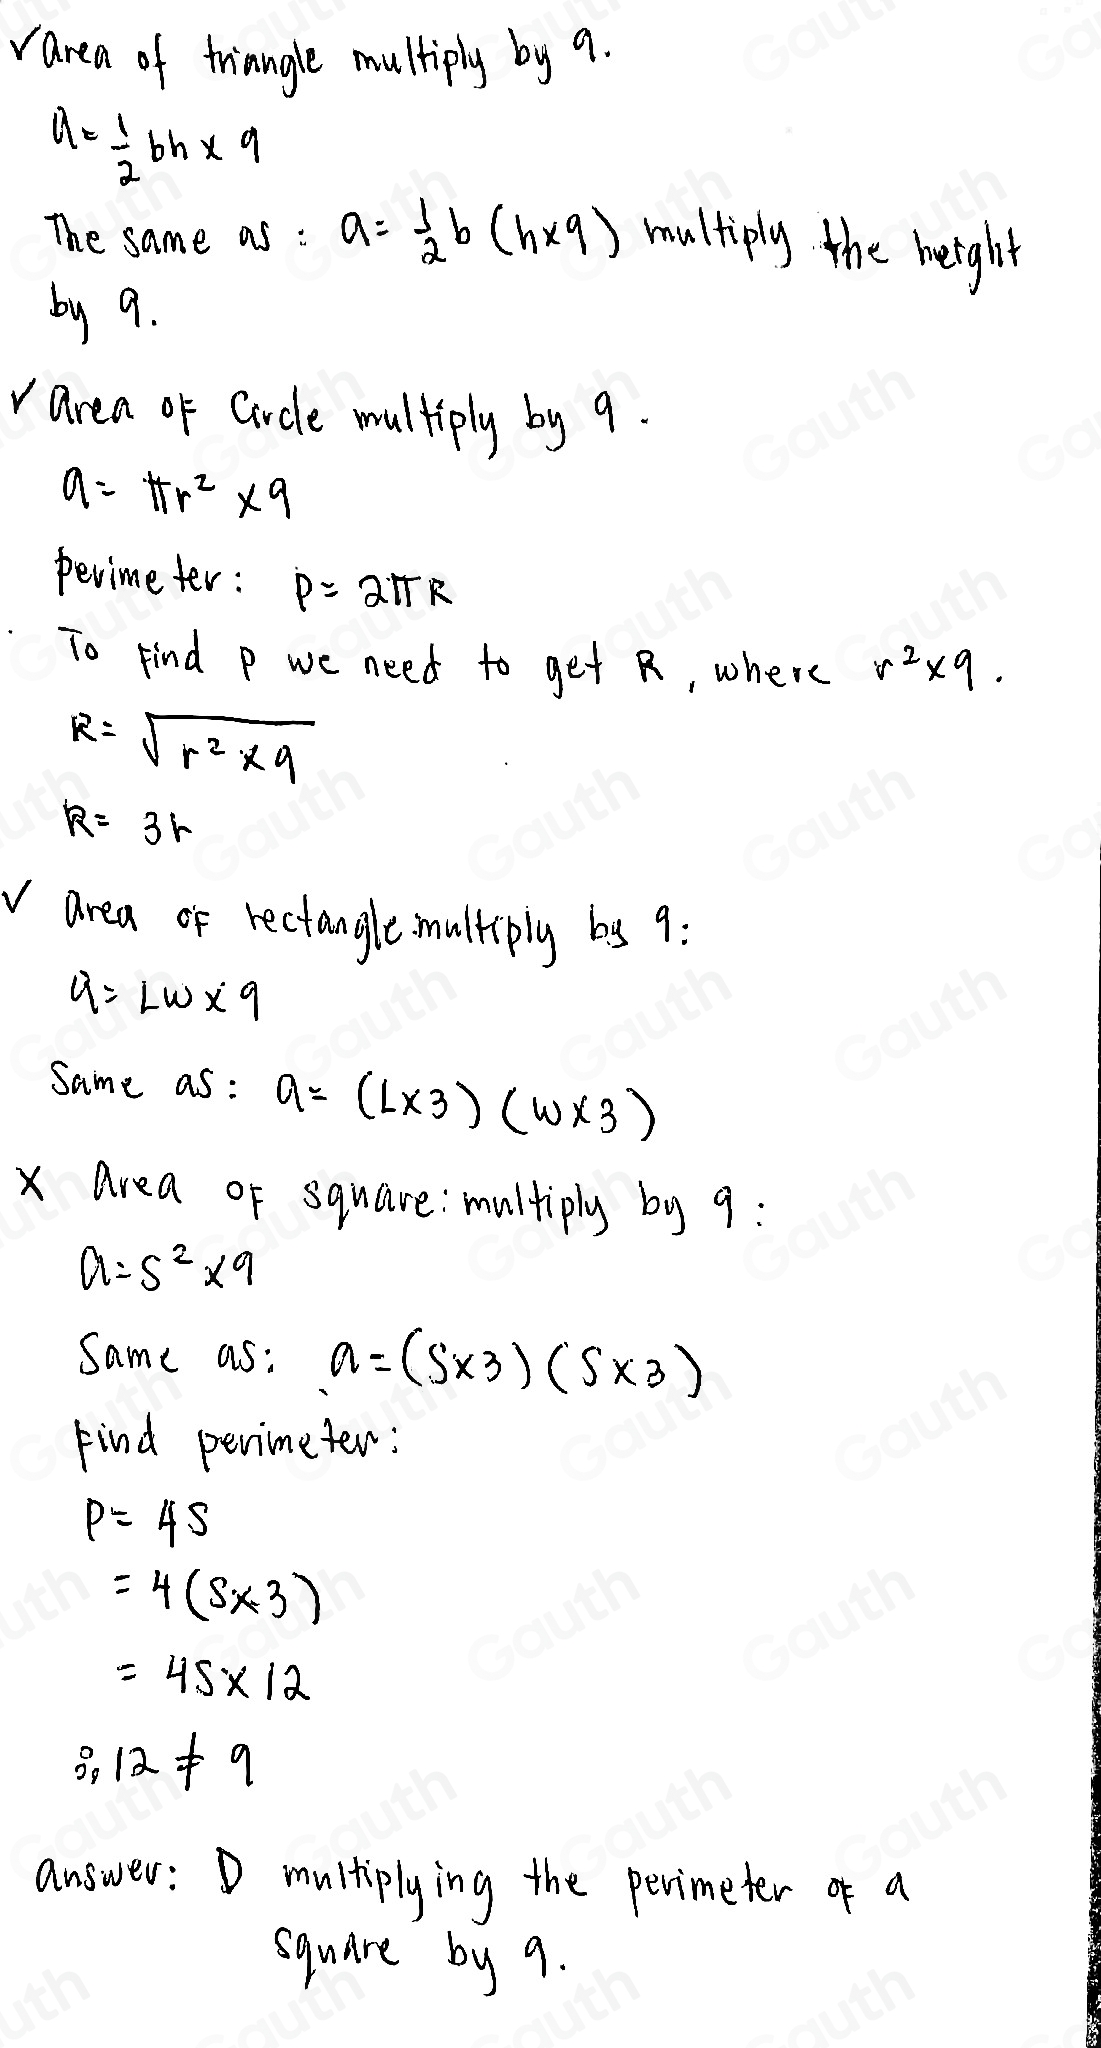 ✓ Area of triangle multiply by 9.
a = 1/2 bh x 9
The same as : a = 1/2 b (h x 9) multiply the height
by 9.
✓ Area of Circle multiply by 9.
a = πr² x 9
perimeter: p = 2πR
To find p we need to get R, where r² x 9.
R = √(r² x 9)
R = 3r
✓ Area of rectangle multiply by 9:
a = LW x 9
Same as: a = (L x 3) (W x 3)
X Area of square: multiply by 9:
a = S² x 9
Same as: a = (S x 3) (S x 3)
Find perimeter:
P = 4S
= 4 (S x 3)
= 4S x 12
∴, 12 ≠ 9
answer: D multiplying the perimeter of a
square by 9.
Gauth